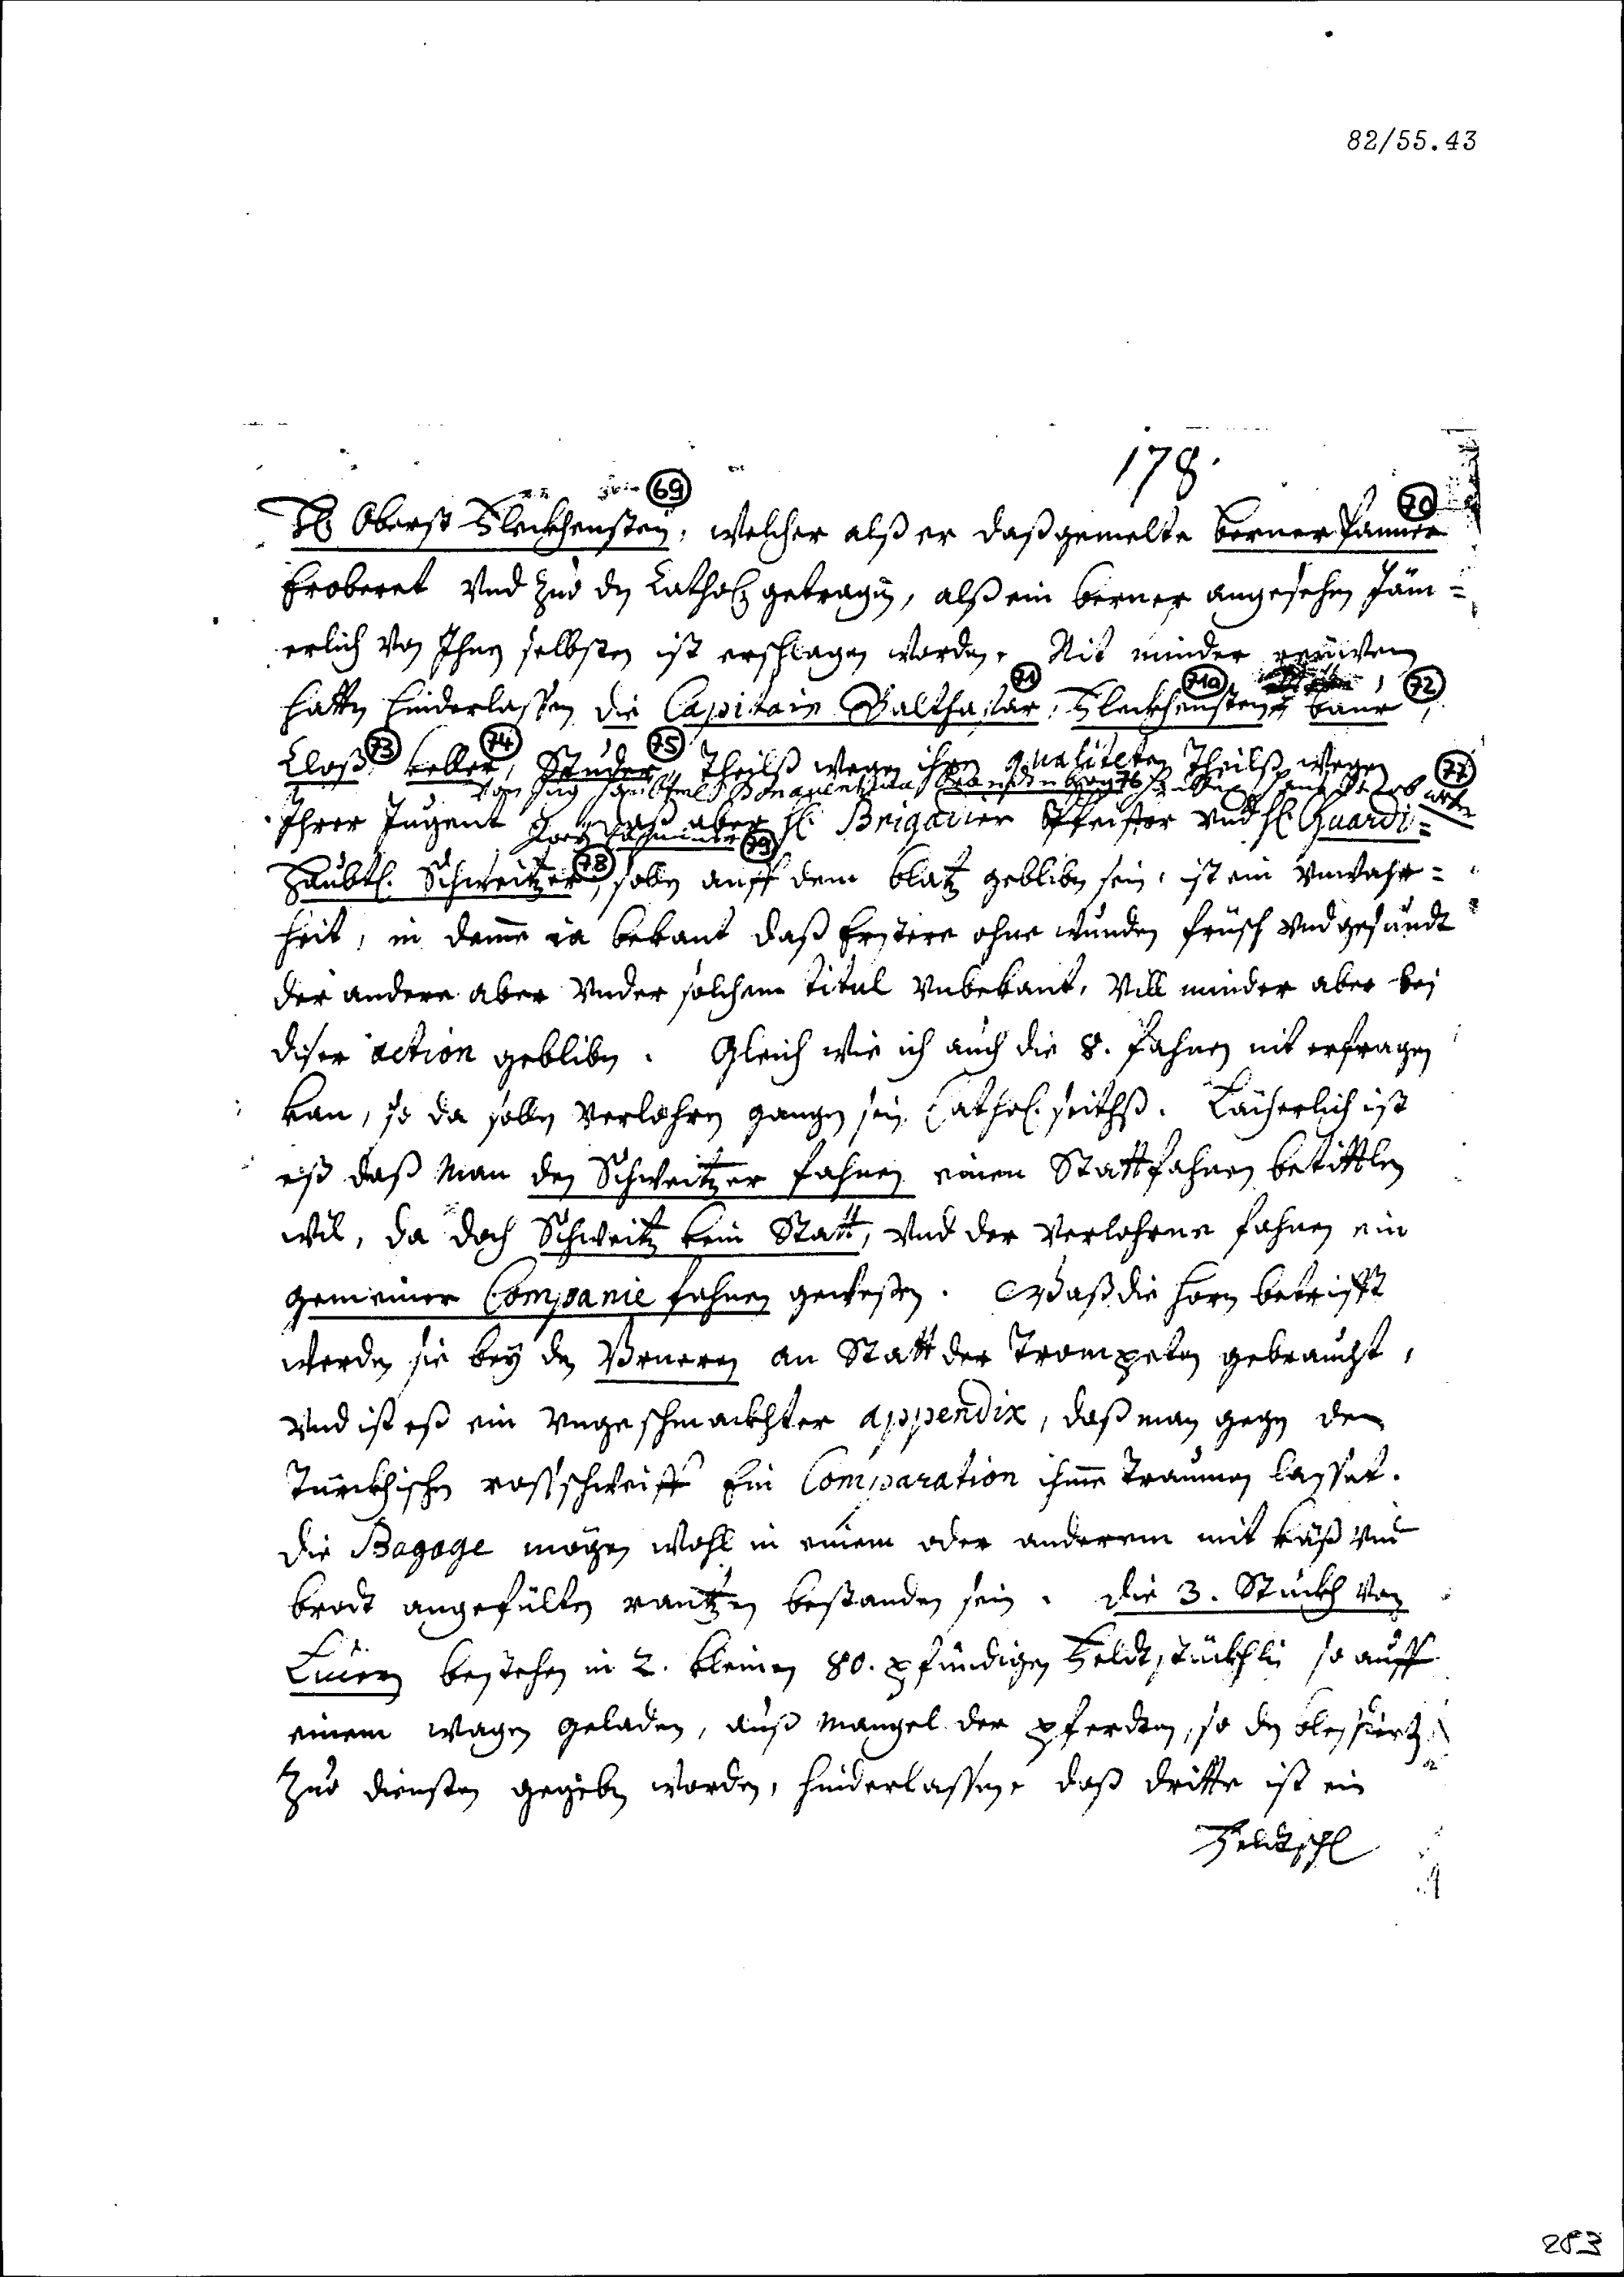 82/55.43
178.
69
70
H. Oberst Fleckhenstein, welcher alß er daß gemelte berner Panner
Eroberet vnd zuo den Cathol. getragen, alß ein berner angesehen Jäm=
erlich von Ihnen selbsten ist erschlagen worden. Nit minder reüwen
71 71a 72
hatten hinderlassen die Capitain Balthasar, Fleckhenstein, baur,
73 74 75
Cloß, keller, Studer, Theilß wegen ihren qualiteten Theilß wegen
77
von Zug haubtm.
Ihrer Tugent daß aber H. Brigadier Pfeiffer vnd H. Guardi=
79
78
Haubtl. Schweitzer, sollen auff dem blatz gebliben sein, ist ein vnwahr=
heit, in deme ia bekant daß Erstere ohne wunden früsch vnd gesundt
der andere aber vnder solchem titul vnbekant, vill minder aber bei
diser action gebliben. Gleich wie ich auch die 8. fahnen nit erfragen
kan, so da sollen verlohren gangen sein Cathol. seithß. Lächerlich ist
eß daß man den Schweitzer fahnen einen Stattfahnen betittlen
wil, da doch Schweitz kein Statt, vnd der verlohrne fahnen ein
gemeiner Companie fahnen geweßen. Waß die horn betrifft
werden sie bey den Vrneren an Statt der Trompeten gebraucht,
vnd ist eß ein vngeschmackhter appendix, daß man gegen den
Türckhischen rossschweiff Ein Comparation ihme traumen lasset.
die Bagage mögen wohl in einem oder anderem mit käß vnd
brodt angefülten rantzen bestanden sein. die 3. Stuckh von
Lucern bestehen in 2. kleinen 80. pfündigen Feldtstückhli so auff
einem wagen geladen, auß mangel der pferdten, so den blessierten
zuo diensten gegeben worden, hinderlassen. daß dritte ist ein
Feldtschl
283